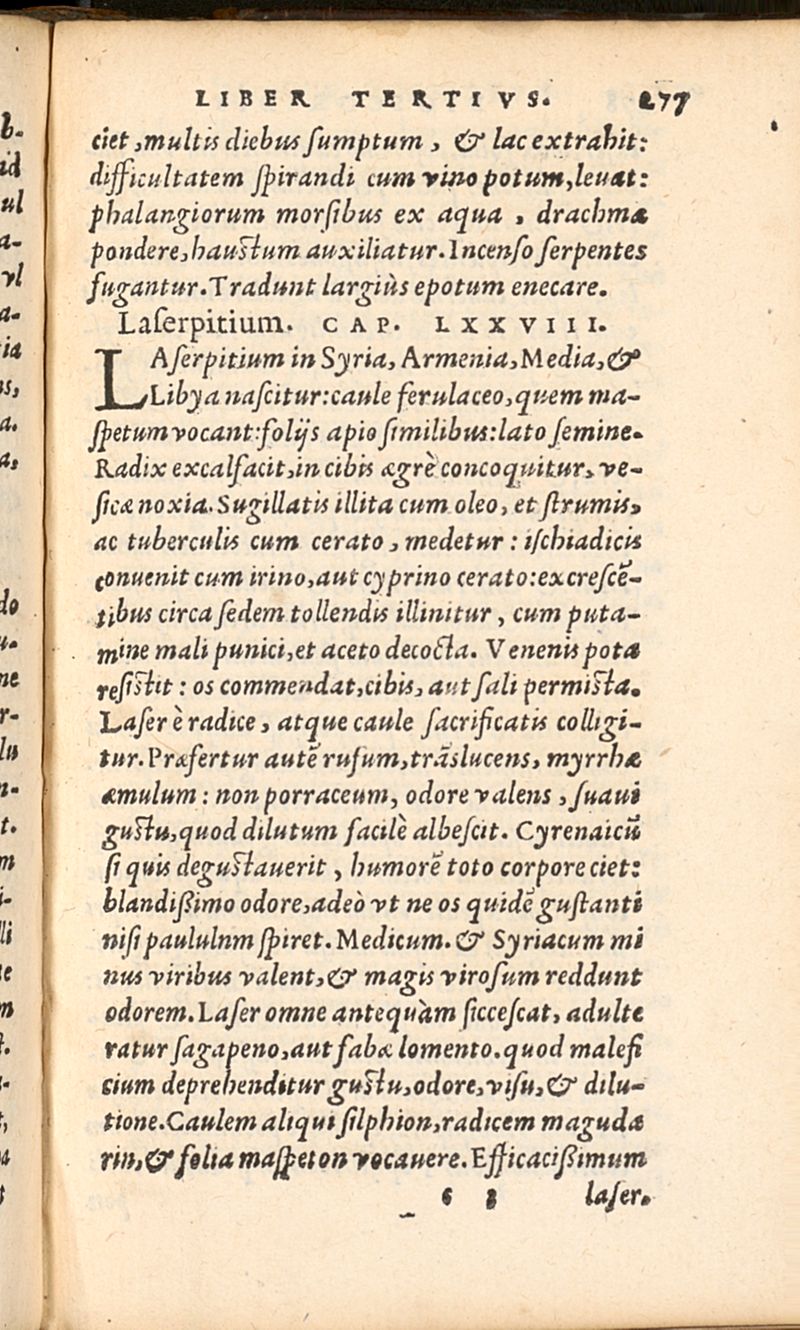 LIBER TERTIVS. 277
ciet, multis diebus sumptum, & lac extrahit:
difficultatem spirandi cum vino potum, levat:
phalangiorum morsibus ex aqua, drachmæ
pondere, haustum auxiliatur. Incenso serpentes
fugantur. Tradunt largiùs epotum enecare.
Laserpitium. CAP. LXXVIII.
LAserpitium in Syria, Armenia, Media, &
Libya nascitur: caule ferulaceo, quem ma-
spetum vocant: folijs apio similibus: lato semine.
Radix excalfacit, in cibis ægrè concoquitur, ve-
sicæ noxia. Sugillatis illita cum oleo, et strumis,
ac tuberculis cum cerato, medetur: ischiadicis
convenit cum irino, aut cyprino cerato: excrescē-
tibus circa sedem tollendis illinitur, cum puta-
mine mali punici, et aceto decocta. Venenis pota
resistit: os commendat, cibis, aut sali permista.
Laser è radice, atque caule sacrificatis colligi-
tur. Præfertur autē rufum, trāslucens, myrrhæ
æmulum: non porraceum, odore valens, suaui
gustu, quod dilutum facilè albescit. Cyrenaicū
si quis degustauerit, humorē toto corpore ciet:
blandissimo odore, adeò vt ne os quidē gustanti
nisi paululnm spiret. Medicum. & Syriacum mi
nus viribus valent, & magis virosum reddunt
odorem. Laser omne antequàm siccescat, adulte
ratur sagapeno, aut fabæ lomento. quod malefi
cium deprehenditur gustu, odore, visu, & dilu-
tione. Caulem aliqui silphion, radicem magudæ
rin, & folia maspeton vocavere. Efficacissimum
laser.
b-
id
ul
a-
vl
a-
ia
a.
a,
do
u-
ne
r-
lu
n-
t.
m
i-
li
te
m